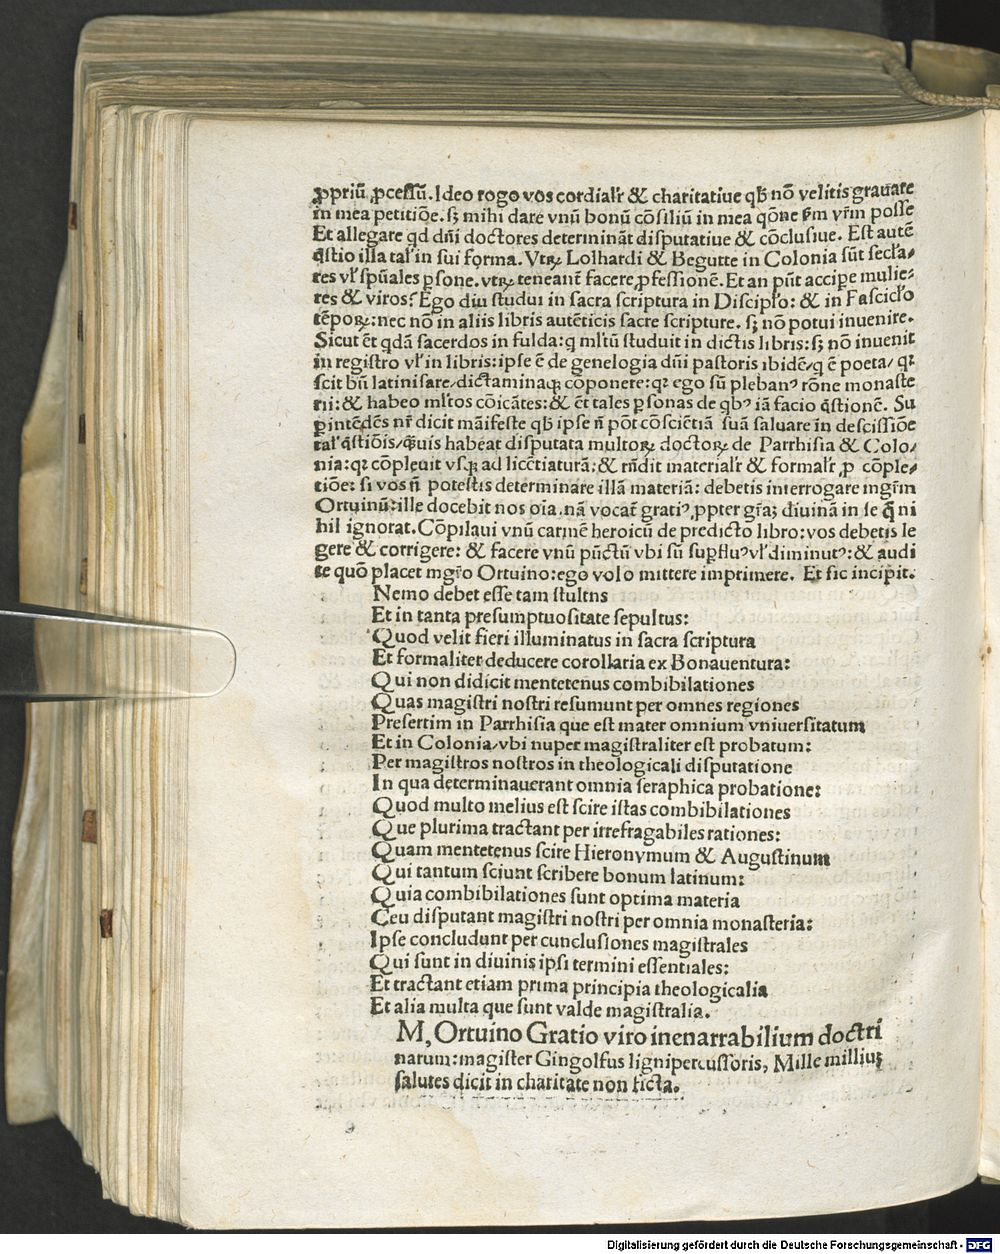 ꝓpriũ ꝓceſſũ. Ideo rogo vos cordial'r & charitatiue qḃ nõ velitis grauare
in mea petitiõe. ſꝫ mihi dare vnũ bonũ cõſiliũ in mea qõne ẜm vr̃m poſſe
Et allegare qd dñi doctores determinãt diſputatiue & cõcluſiue. Eſt autẽ
q̃ſtio illa tal' in ſui forma. Vtrꝫ Lolhardi & Begutte in Colonia ſũt ſecla⸗
res vl' ſpũales ꝑſone. vtrꝫ teneant̃ facere ꝓfeſſionẽ. Et an pñt accipe mulie⸗
res & viros? Ego diu ſtudui in ſacra ſcriptura in Diſcipl'o: & in Faſcicl'o
tẽpoꝝ: nec nõ in aliis libris autẽticis ſacre ſcripture. ſꝫ nõ potui inuenire.
Sicut ẽt qdã ſacerdos in fulda: q ml'tũ ſtuduit in dictis libris: ſꝫ nõ inuenit
in regiſtro vl' in libris: ipſe ẽ de genelogia dñi paſtoris ibidẽ/ q ẽ poeta/ qꝛ
ſcit bñ latiniſare/ dictaminaqꝫ cõponere: qꝛ ego ſũ plebanꝰ rõne monaſte
rii: & habeo ml'tos cõicãtes: & ẽt tales ꝑſonas de qbꝰ iã facio q̃ſtionẽ. Su
ꝑintẽdẽs nr̃ dicit mãifeſte qḃ ipſe ñ põt cõſciẽtiã ſuã ſaluare in deſciſſiõe
tal' q̃ſtiõis/ q̃uis habeat diſputata multoꝝ doctoꝝ de Parrhiſia & Colo⸗
nia: qꝛ cõpleuit vſqꝫ ad licẽtiaturã: & rñdit material'r & formal'r ꝓ cõple⸗
tiõe: ſi vos ñ poteſtis determinare illã materiã: debetis interrogare mgr̃m
Ortuinũ: ille docebit nos oĩa. nã vocat̃ gratiꝰ ꝓpter gr̃aꝫ diuinã in ſe q̃ ni
hil ignorat. Cõpilaui vnũ carmẽ heroicũ de predicto libro: vos debetis le
gere & corrigere: & facere vnũ pũctũ vbi ſũ ſupfluꝰ vl' diminutꝰ: & audi
te quõ placet mgr̃o Ortuino: ego volo mittere imprimere. Et ſic incipit.
Nemo debet eſſe tam ſtultus
Et in tanta preſumptuoſitate ſepultus:
Quod velit fieri illuminatus in ſacra ſcriptura
Et formaliter deducere corollaria ex Bonauentura:
Qui non didicit mentetenus combibilationes
Quas magiſtri noſtri reſumunt per omnes regiones
Preſertim in Parrhiſia que eſt mater omnium vniuerſitatum
Et in Colonia/ vbi nuper magiſtraliter eſt probatum:
Per magiſtros noſtros in theologicali diſputatione
In qua determinauerant omnia ſeraphica probatione:
Quod multo melius eſt ſcire iſtas combibilationes
Que plurima tractant per irrefragabiles rationes:
Quam mentetenus ſcire Hieronymum & Auguſtinum
Qui tantum ſciunt ſcribere bonum latinum:
Quia combibilationes ſunt optima materia
Ceu diſputant magiſtri noſtri per omnia monaſteria:
Ipſe concludunt per cuncluſiones magiſtrales
Qui ſunt in diuinis ipſi termini eſſentiales:
Et tractant etiam prima principia theologicalia
Et alia multa que ſunt valde magiſtralia.
M, Ortuino Gratio viro inenarrabilium doctri
narum: magiſter Gingolfus lignipercuſſoris, Mille milliuꝫ
ſalutes dicit in charitate non ficta.
Digitalisierung gefördert durch die Deutsche Forschungsgemeinschaft - DFG